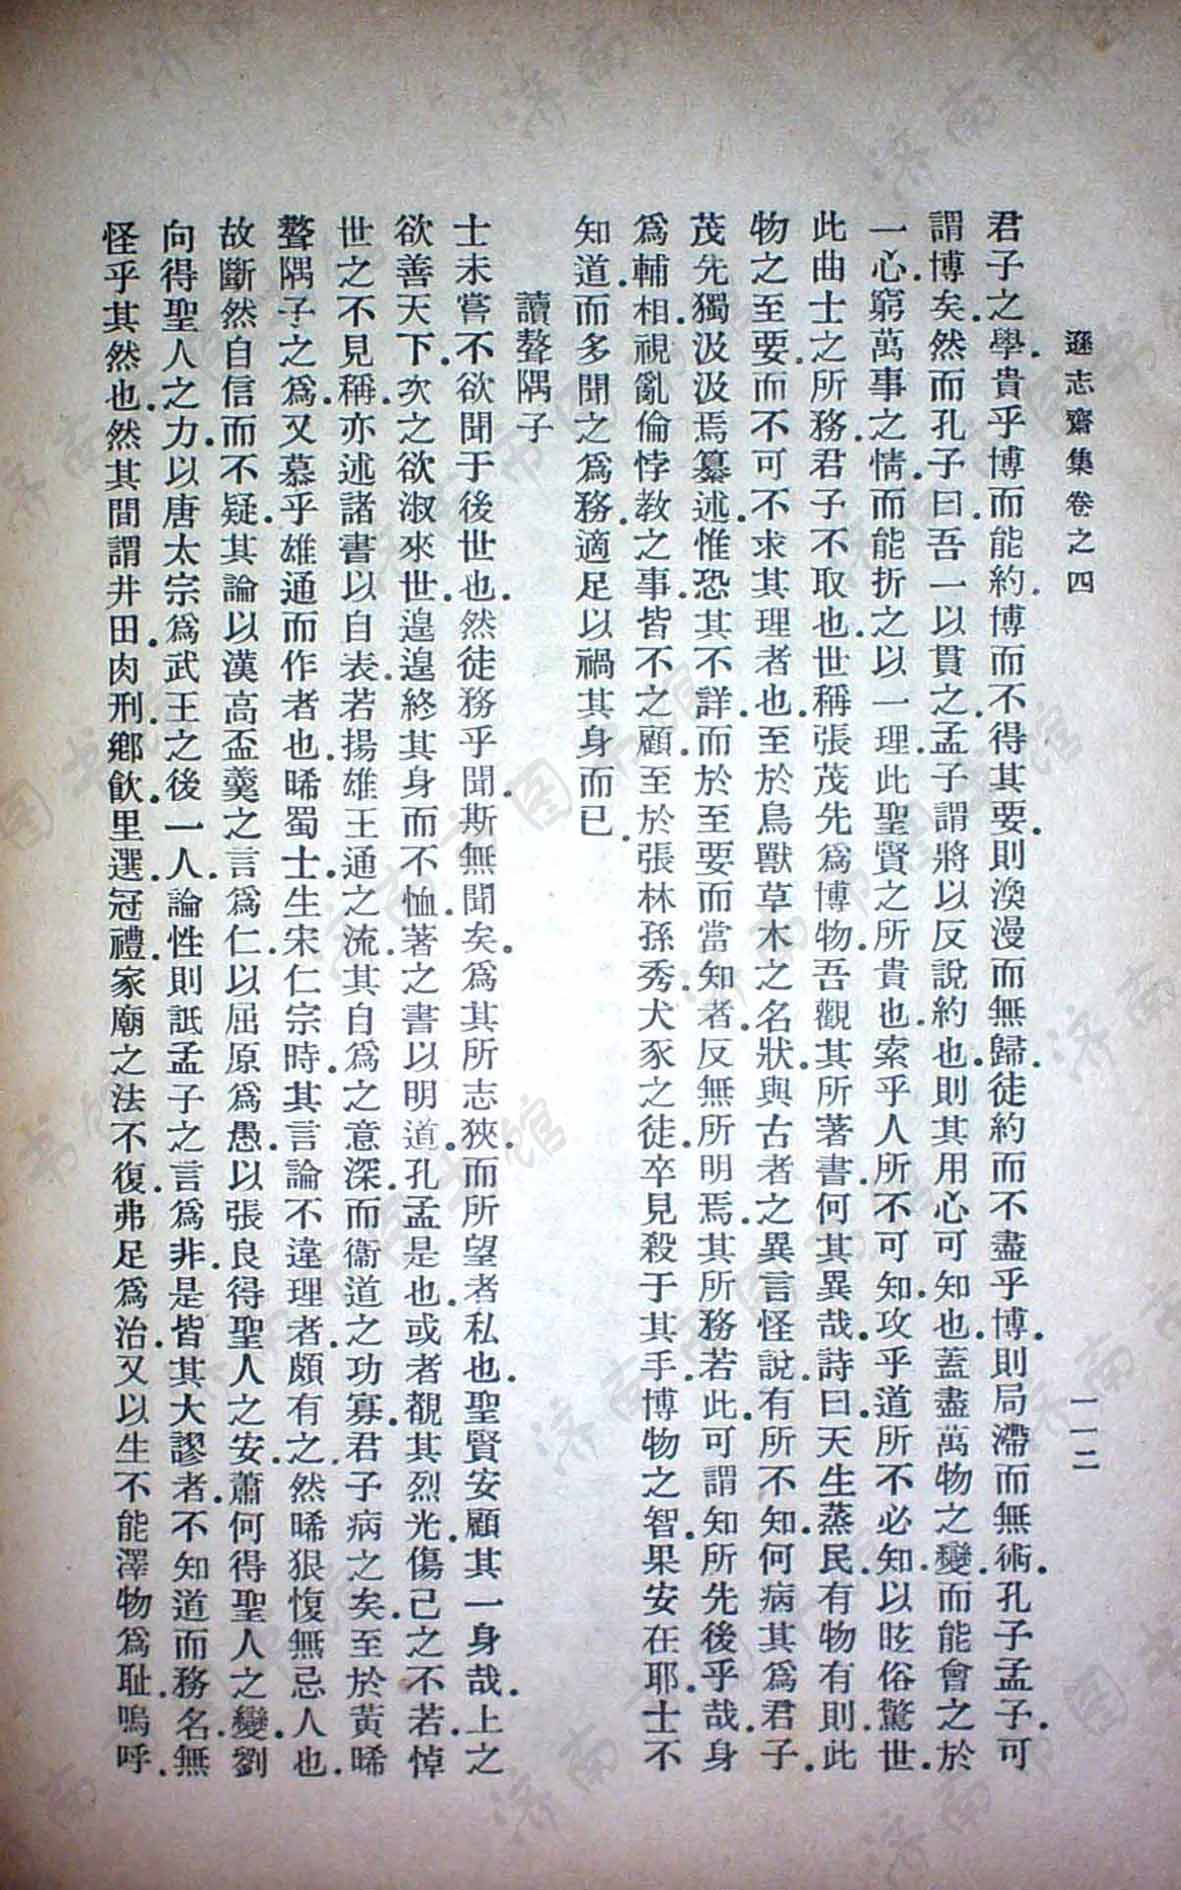 遜志齋集卷之四
一一二
君子之學.貴乎博而能約.博而不得其要.則渙漫而無歸.徒約而不盡乎博.則局滯而無術.孔子孟子.可
謂博矣.然而孔子曰.吾一以貫之.孟子謂將以反說約也.則其用心可知也.蓋盡萬物之變.而能會之於
一心.窮萬事之情.而能折之以一理.此聖賢之所貴也.索乎人所不可知.攻乎道所不必知.以眩俗驚世.
此曲士之所務.君子不取也.世稱張茂先爲博物.吾觀其所著書.何其異哉.詩曰.天生蒸民.有物有則.此
物之至要.而不可不求其理者也.至於鳥獸草木之名狀.與古者之異言怪說.有所不知.何病其爲君子.
茂先獨汲汲焉纂述.惟恐其不詳.而於至要而當知者.反無所明焉.其所務若此.可謂知所先後乎哉.身
爲輔相.視亂倫悖教之事.皆不之顧.至於張林孫秀.犬豕之徒.卒見殺于其手.博物之智.果安在耶.士不
知道.而多聞之爲務.適足以禍其身而已.
讀聱隅子
士未嘗不欲聞于後世也.然徒務乎聞.斯無聞矣.爲其所志狹.而所望者私也.聖賢安顧其一身哉.上之
欲善天下.次之欲淑來世.遑遑終其身而不恤.著之書以明道.孔孟是也.或者覩其烈光.傷己之不若.悼
世之不見稱.亦述諸書以自表.若揚雄王通之流.其自爲之意深.而衞道之功寡.君子病之矣.至於黃晞
聱隅子之爲.又慕乎雄通而作者也.晞蜀士.生宋仁宗時.其言論不違理者.頗有之.然晞狠愎無忌人也.
故斷然自信而不疑.其論以漢高盃羹之言爲仁.以屈原爲愚.以張良得聖人之安.蕭何得聖人之變.劉
向得聖人之力.以唐太宗爲武王之後一人.論性則詆孟子之言爲非.是皆其大謬者.不知道而務名.無
怪乎其然也.然其間謂井田.肉刑.鄉飲.里選.冠禮.家廟之法不復.弗足爲治.又以生不能澤物爲耻.嗚呼.